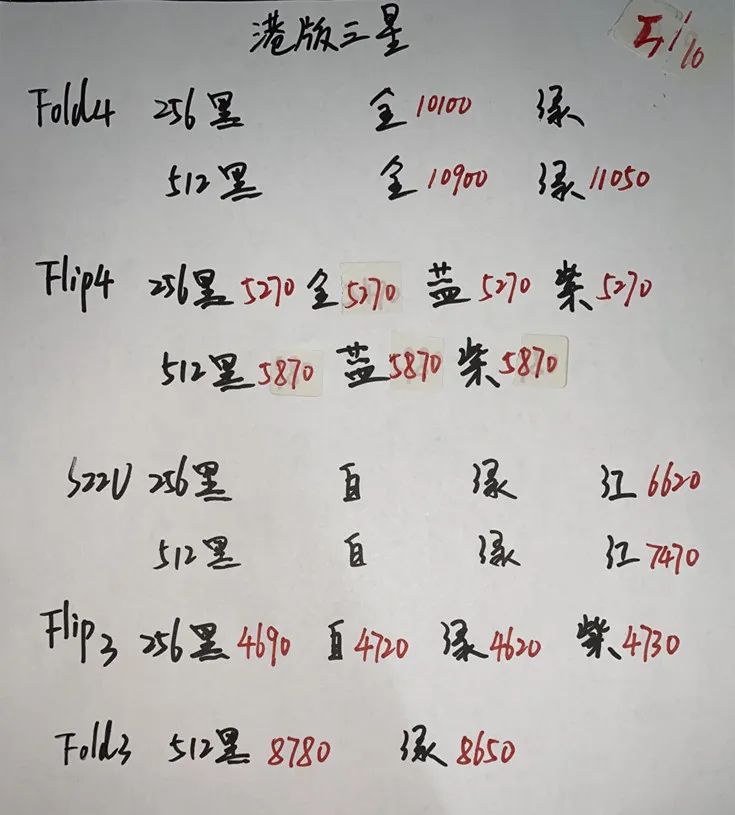 港版三星
Fold4 256黑 金10100 绿
512黑 金10900 绿11050
Flip4 256黑5270 金5270 蓝5270 紫5270
512黑5870 蓝5870 紫5870
S22U 256黑 白 绿 红6620
512黑 白 绿 红7470
Flip3 256黑4690 白4720 绿4620 紫4730
Fold3 512黑8780 绿8650